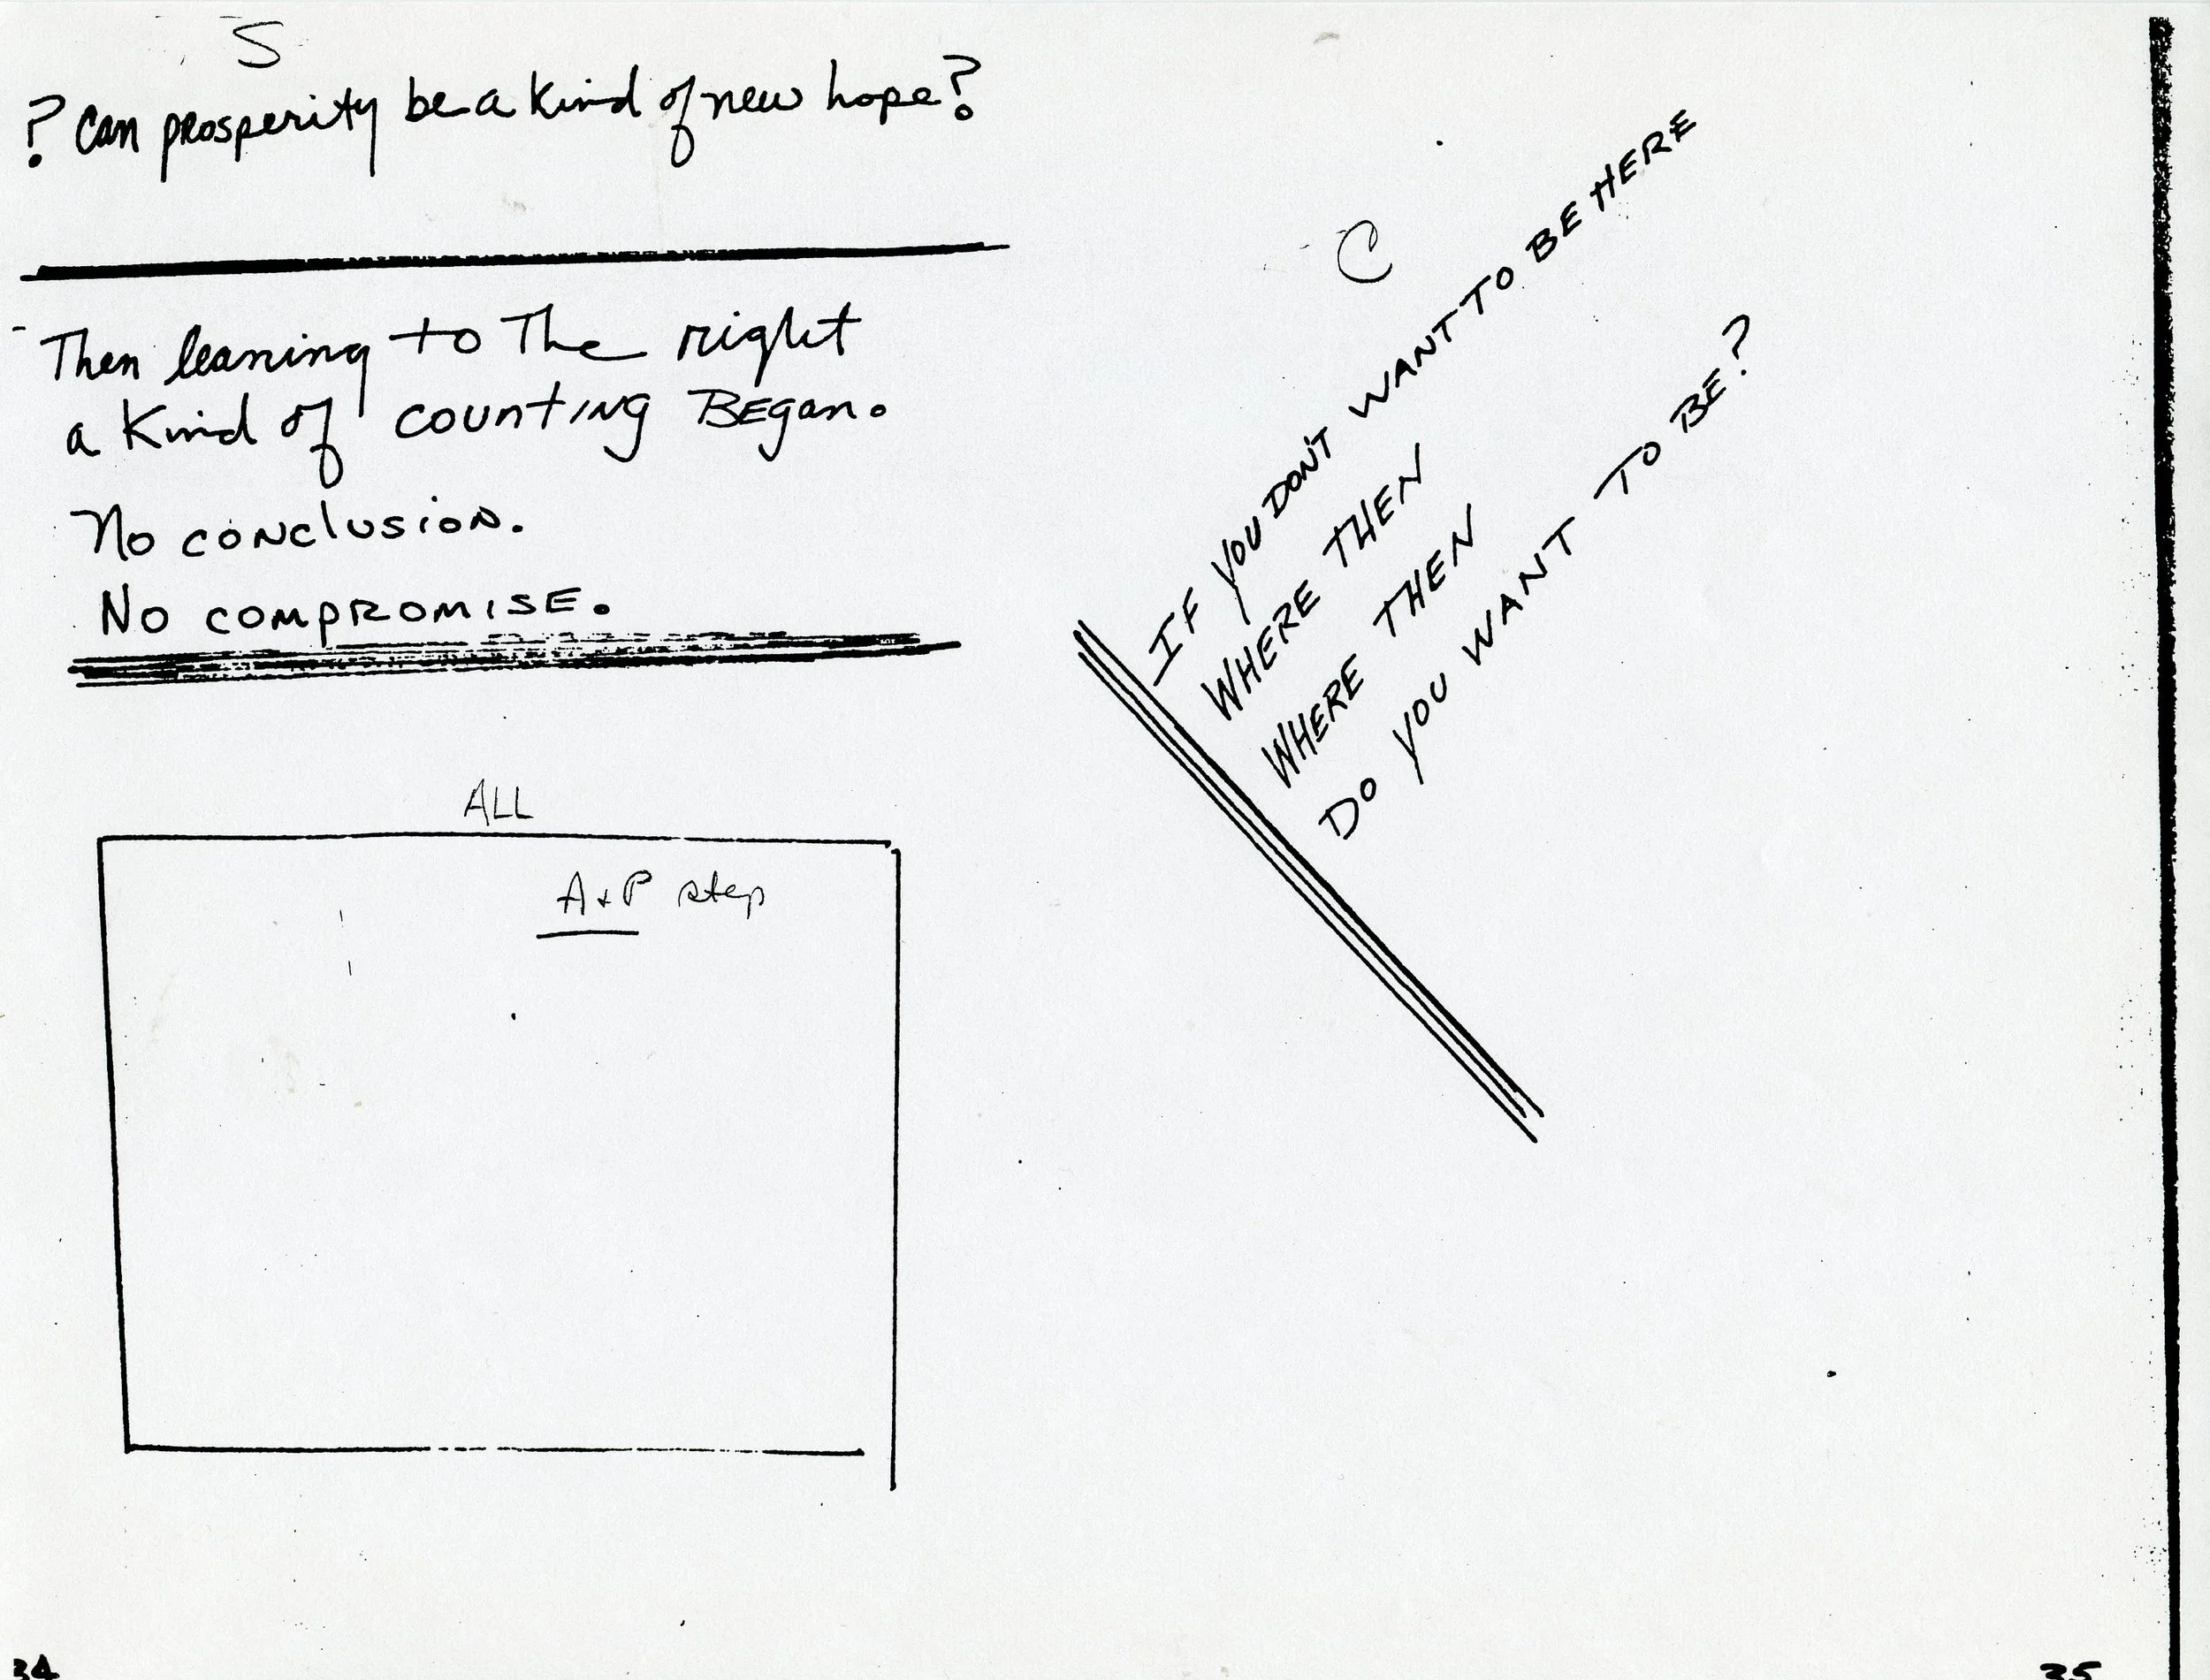 S
? Can prosperity be a kind of new hope?
Then leaning to The right
a Kind of counting Began.
No conclusion.
No compromise.
ALL
A+P step
34
C
IF YOU DON'T WANT TO BE HERE
WHERE THEN
WHERE THEN
DO YOU WANT TO BE?
35